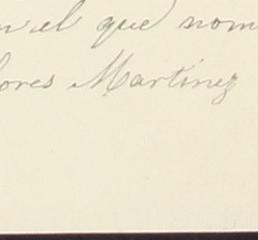 el que nom
ores Martinez